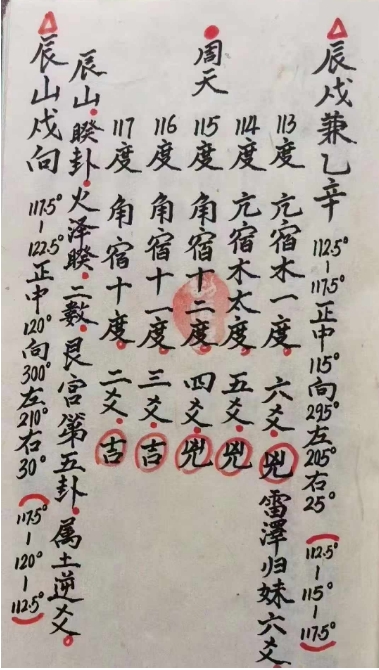 辰戌兼乙辛 112.5°-117.5°正中115°向295°左205°右25°(112.5°-115°-117.5°)
周天
113度 亢宿木一度 六爻 兇 雷澤归妹六爻
114度 亢宿木太度 五爻 兇
115度 角宿十二度 四爻 兇
116度 角宿十一度 三爻 吉
117度 角宿十度 二爻 吉
辰山睽卦火泽睽二数艮宫第五卦属土逆爻
辰山戌向 117.5°-122.5°正中120°向300°左210°右30°(117.5°-120°-112.5°)